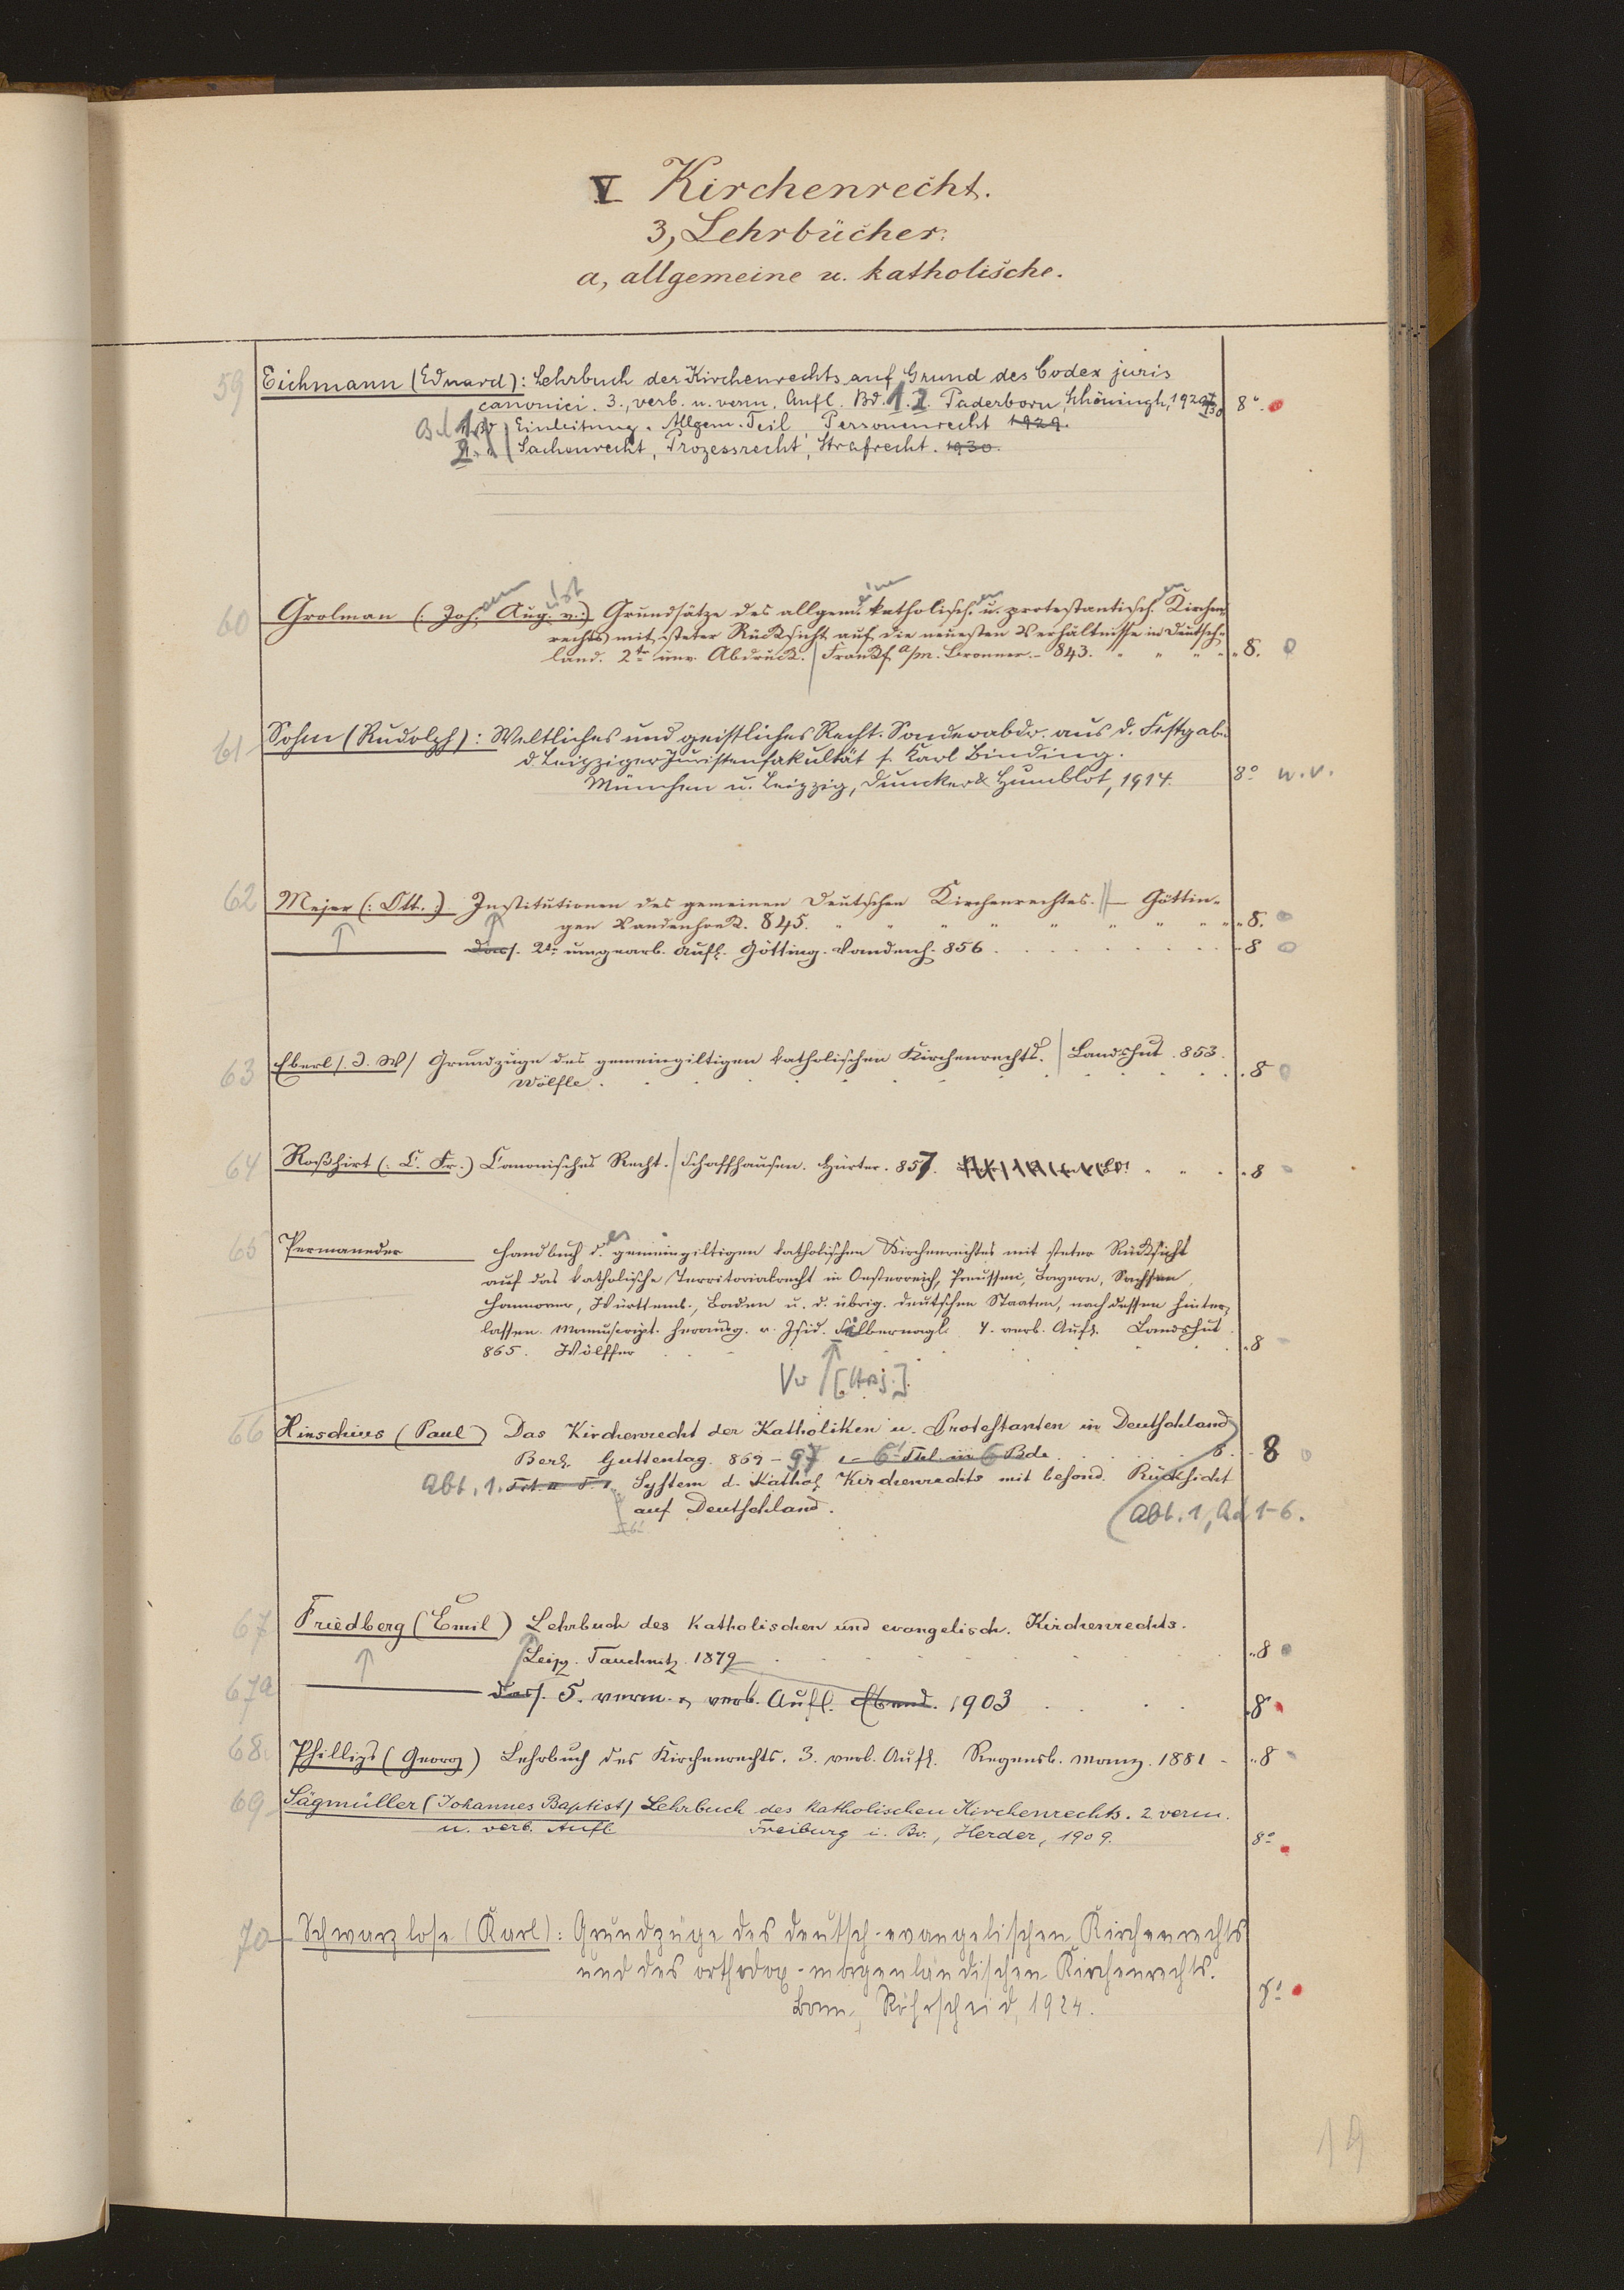 V Kirchenrecht.
3, Lehrbücher.
a, allgemeine u. katholische.
59 Eichmann (Eduard): Lehrbuch der Kirchenrechts auf Grund des Codex juris
canonici. 3., verb. u. verm. Aufl. Bd. 1. 2. Paderborn, Schöningh, 1929/30 8°.
Bd 1. Einleitung. Allgem. Teil Personenrecht 1929.
2. Sachenrecht, Prozessrecht, Strafrecht. 1930.
60 Grolman (: Joh. Aug. v.:) Grundsätze des allgem. katholisch. u. protestantisch. Kirchen-
rechts mit steter Rücksicht auf die neuesten Verhältnisse in Deutsch-
land. 2te unv. Abdruck. Frankf a/m. Bronner. - 843. " " " " 8.
61 Sohm (Rudolph): Weltliches und geistliches Recht. Sonderabdr. aus d. Festgabe
d. Leipziger Juristenfakultät f. Karl Binding.
München u. Leipzig, Duncker & Humblot, 1914. 8° w. v.
62 Mejer (: Ott. :) Institutionen des gemeinen Deutschen Kirchenrechtes. — Göttin-
gen Vandenhoek. 845. " " " " " " " " 8.
Dass. 2te umgearb. Aufl. Götting. Vandenh. 856 . . . . 8
63 Eberl /. J. W / Grundzüge des gemeingiltigen katholischen Kirchenrechts. Landshut. 853.
Wölfle . . . . 8
64 Roßhirt (: C. Fr.) Canonisches Recht. Schaffhausen. Hurter. 857. " " " 8
65 Permaneder Handbuch des gemeingiltigen katholischen Kirchenrechtes mit steter Rücksicht
auf das katholische Territorialrecht in Oesterreich, Preussen, Bayern, Sachsen,
Hannover, Württemb., Baden u. d. übrig. deutschen Staaten, nach dessen hinter-
lassen. Manuscript. herausg. v. Isid. Silbernagl. 4. verb. Aufl. Landshut
865. Wölffer . . . . 8
[Hrsg.]
66 Hinschius (Paul) Das Kirchenrecht der Katholiken u. Protestanten in Deutschland
Berl. Guttentag. 869 - 97 6 Bde . . . 8. 8
Abt. 1. System d. Kathol. Kirchenrechts mit besond. Rücksicht
auf Deutschland. (Abt. 1, Bd 1-6.
67 Friedberg (Emil) Lehrbuch des Katholischen und evangelisch. Kirchenrechts.
Leipz. Tauchnitz. 1879 . . . . 8
67a Dass. 5. verm. u. verb. Aufl. Ebend. 1903 . . . . 8
68. Phillips (Georg) Lehrbuch des Kirchenrechts. 3. verb. Aufl. Regensb. Manz. 1881 - " 8
69 Sägmüller (Johannes Baptist) Lehrbuch des katholischen Kirchenrechts. 2 verm.
u. verb. Aufl Freiburg i. Br., Herder, 1909. 8°
70 Schwarzlose (Karl): Grundzüge des deutsch-evangelischen Kirchenrechts
und des orthodox-morgenländischen Kirchenrechts.
Bonn, Röhrscheid, 1924. 8°
19